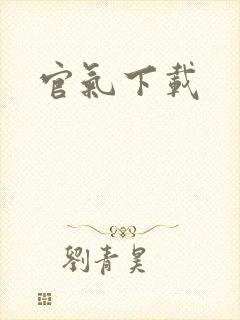 官氣下載
劉青昊